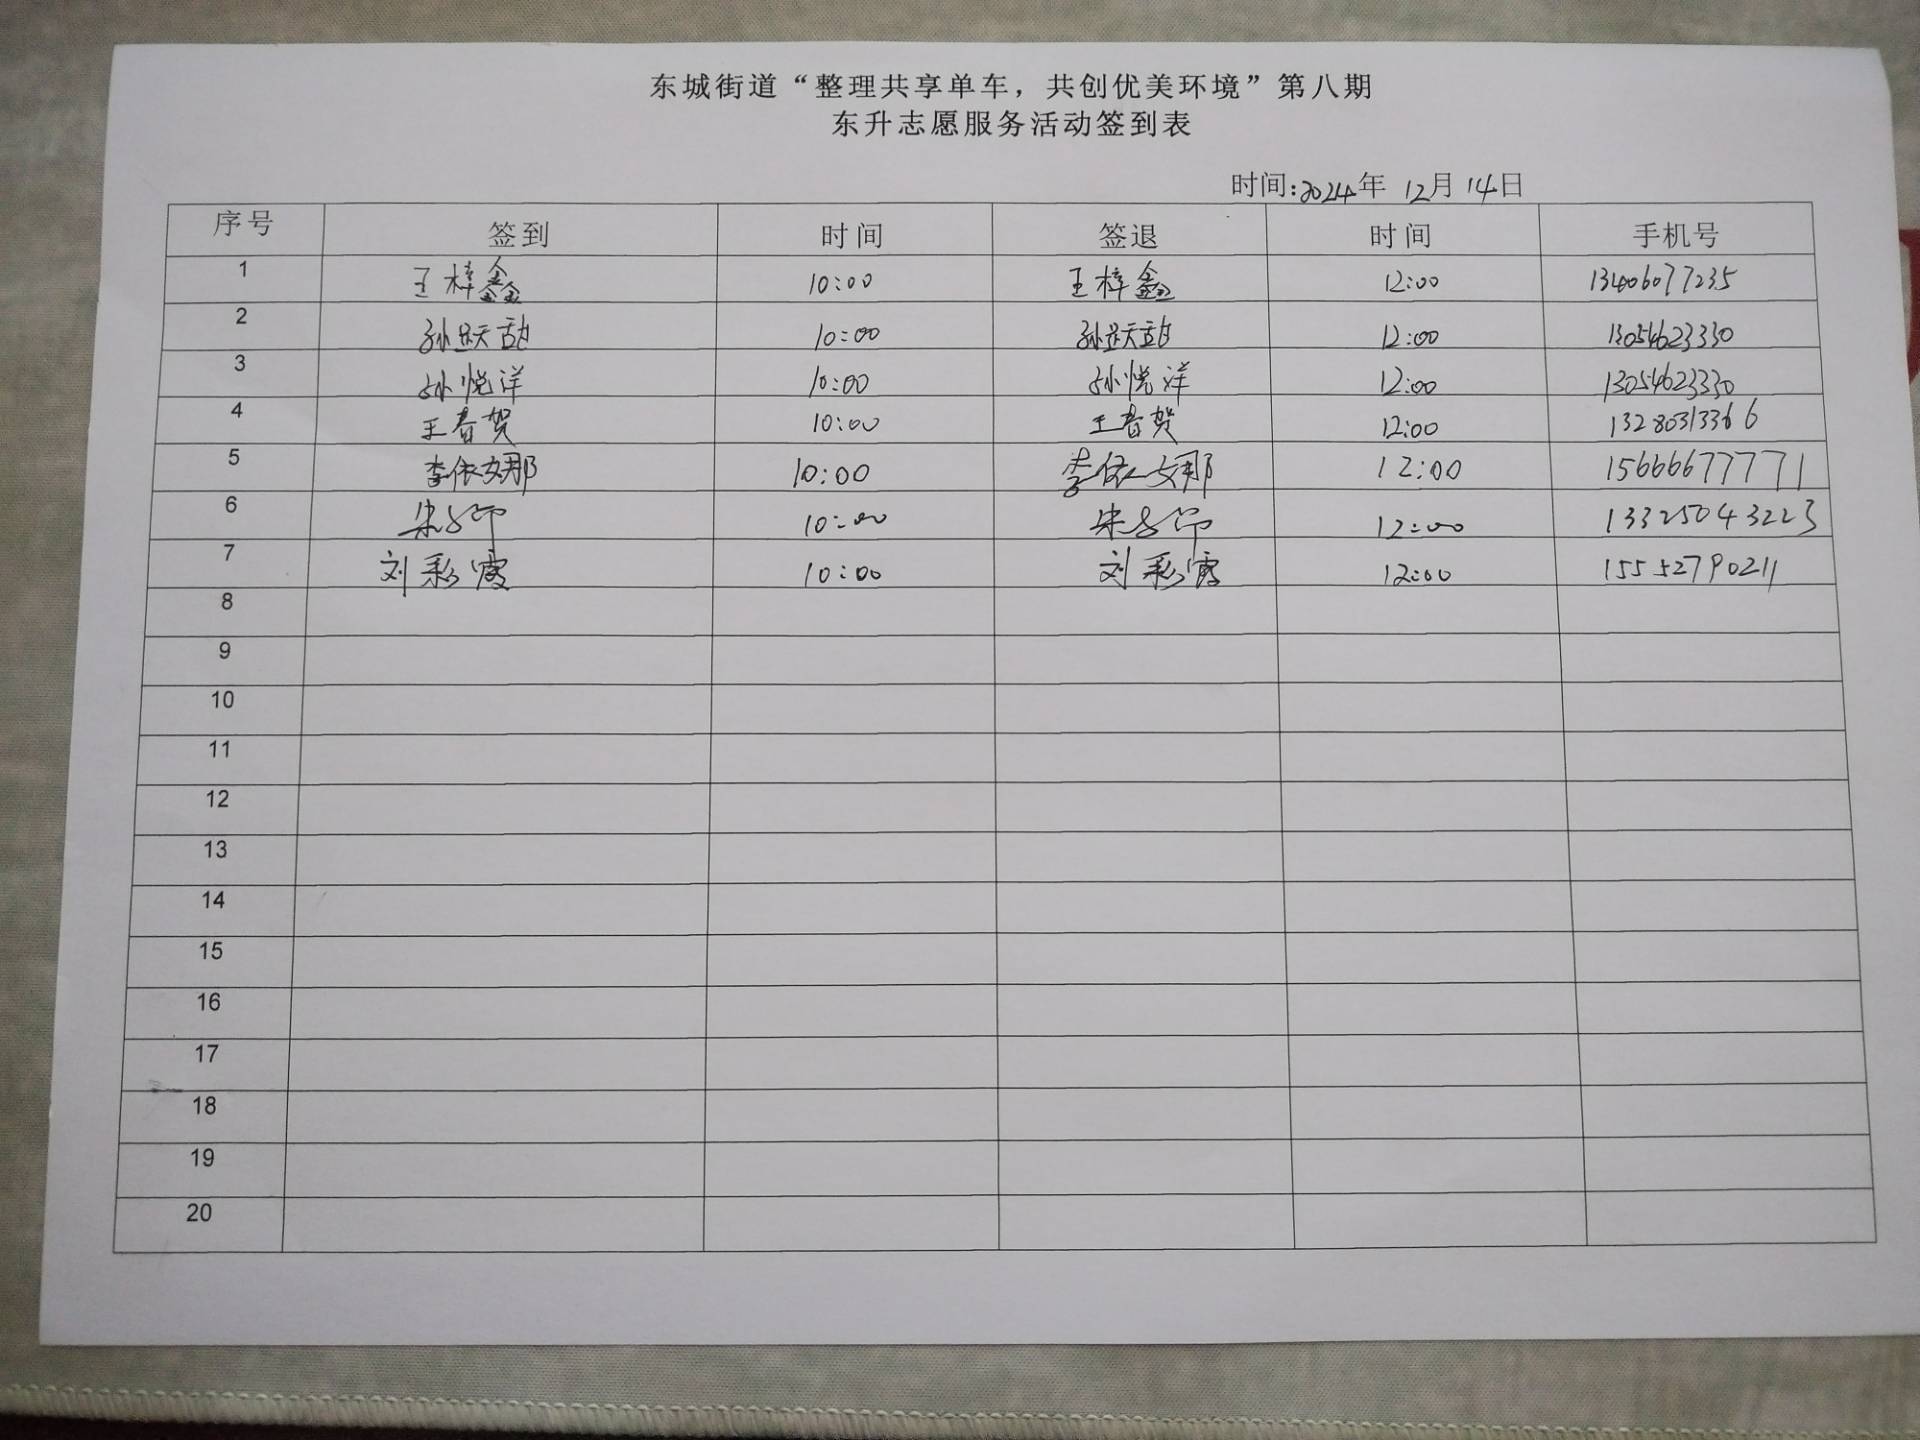 东城街道“整理共享单车，共创优美环境”第八期
东升志愿服务活动签到表
时间:2024年 12月 14日
序号 签到 时间 签退 时间 手机号
1 王梓鑫 10:00 王梓鑫 12:00 13406077235
2 孙跃甜 10:00 孙跃甜 12:00 13054623330
3 孙悦洋 10:00 孙悦洋 12:00 13054623330
4 王春贺 10:00 王春贺 12:00 13280313366
5 李依娜 10:00 李依娜 12:00 15666677771
6 10:00 12:00 13325043223
7 刘彩霞 10:00 刘彩霞 12:00 15552790211
8
9
10
11
12
13
14
15
16
17
18
19
20